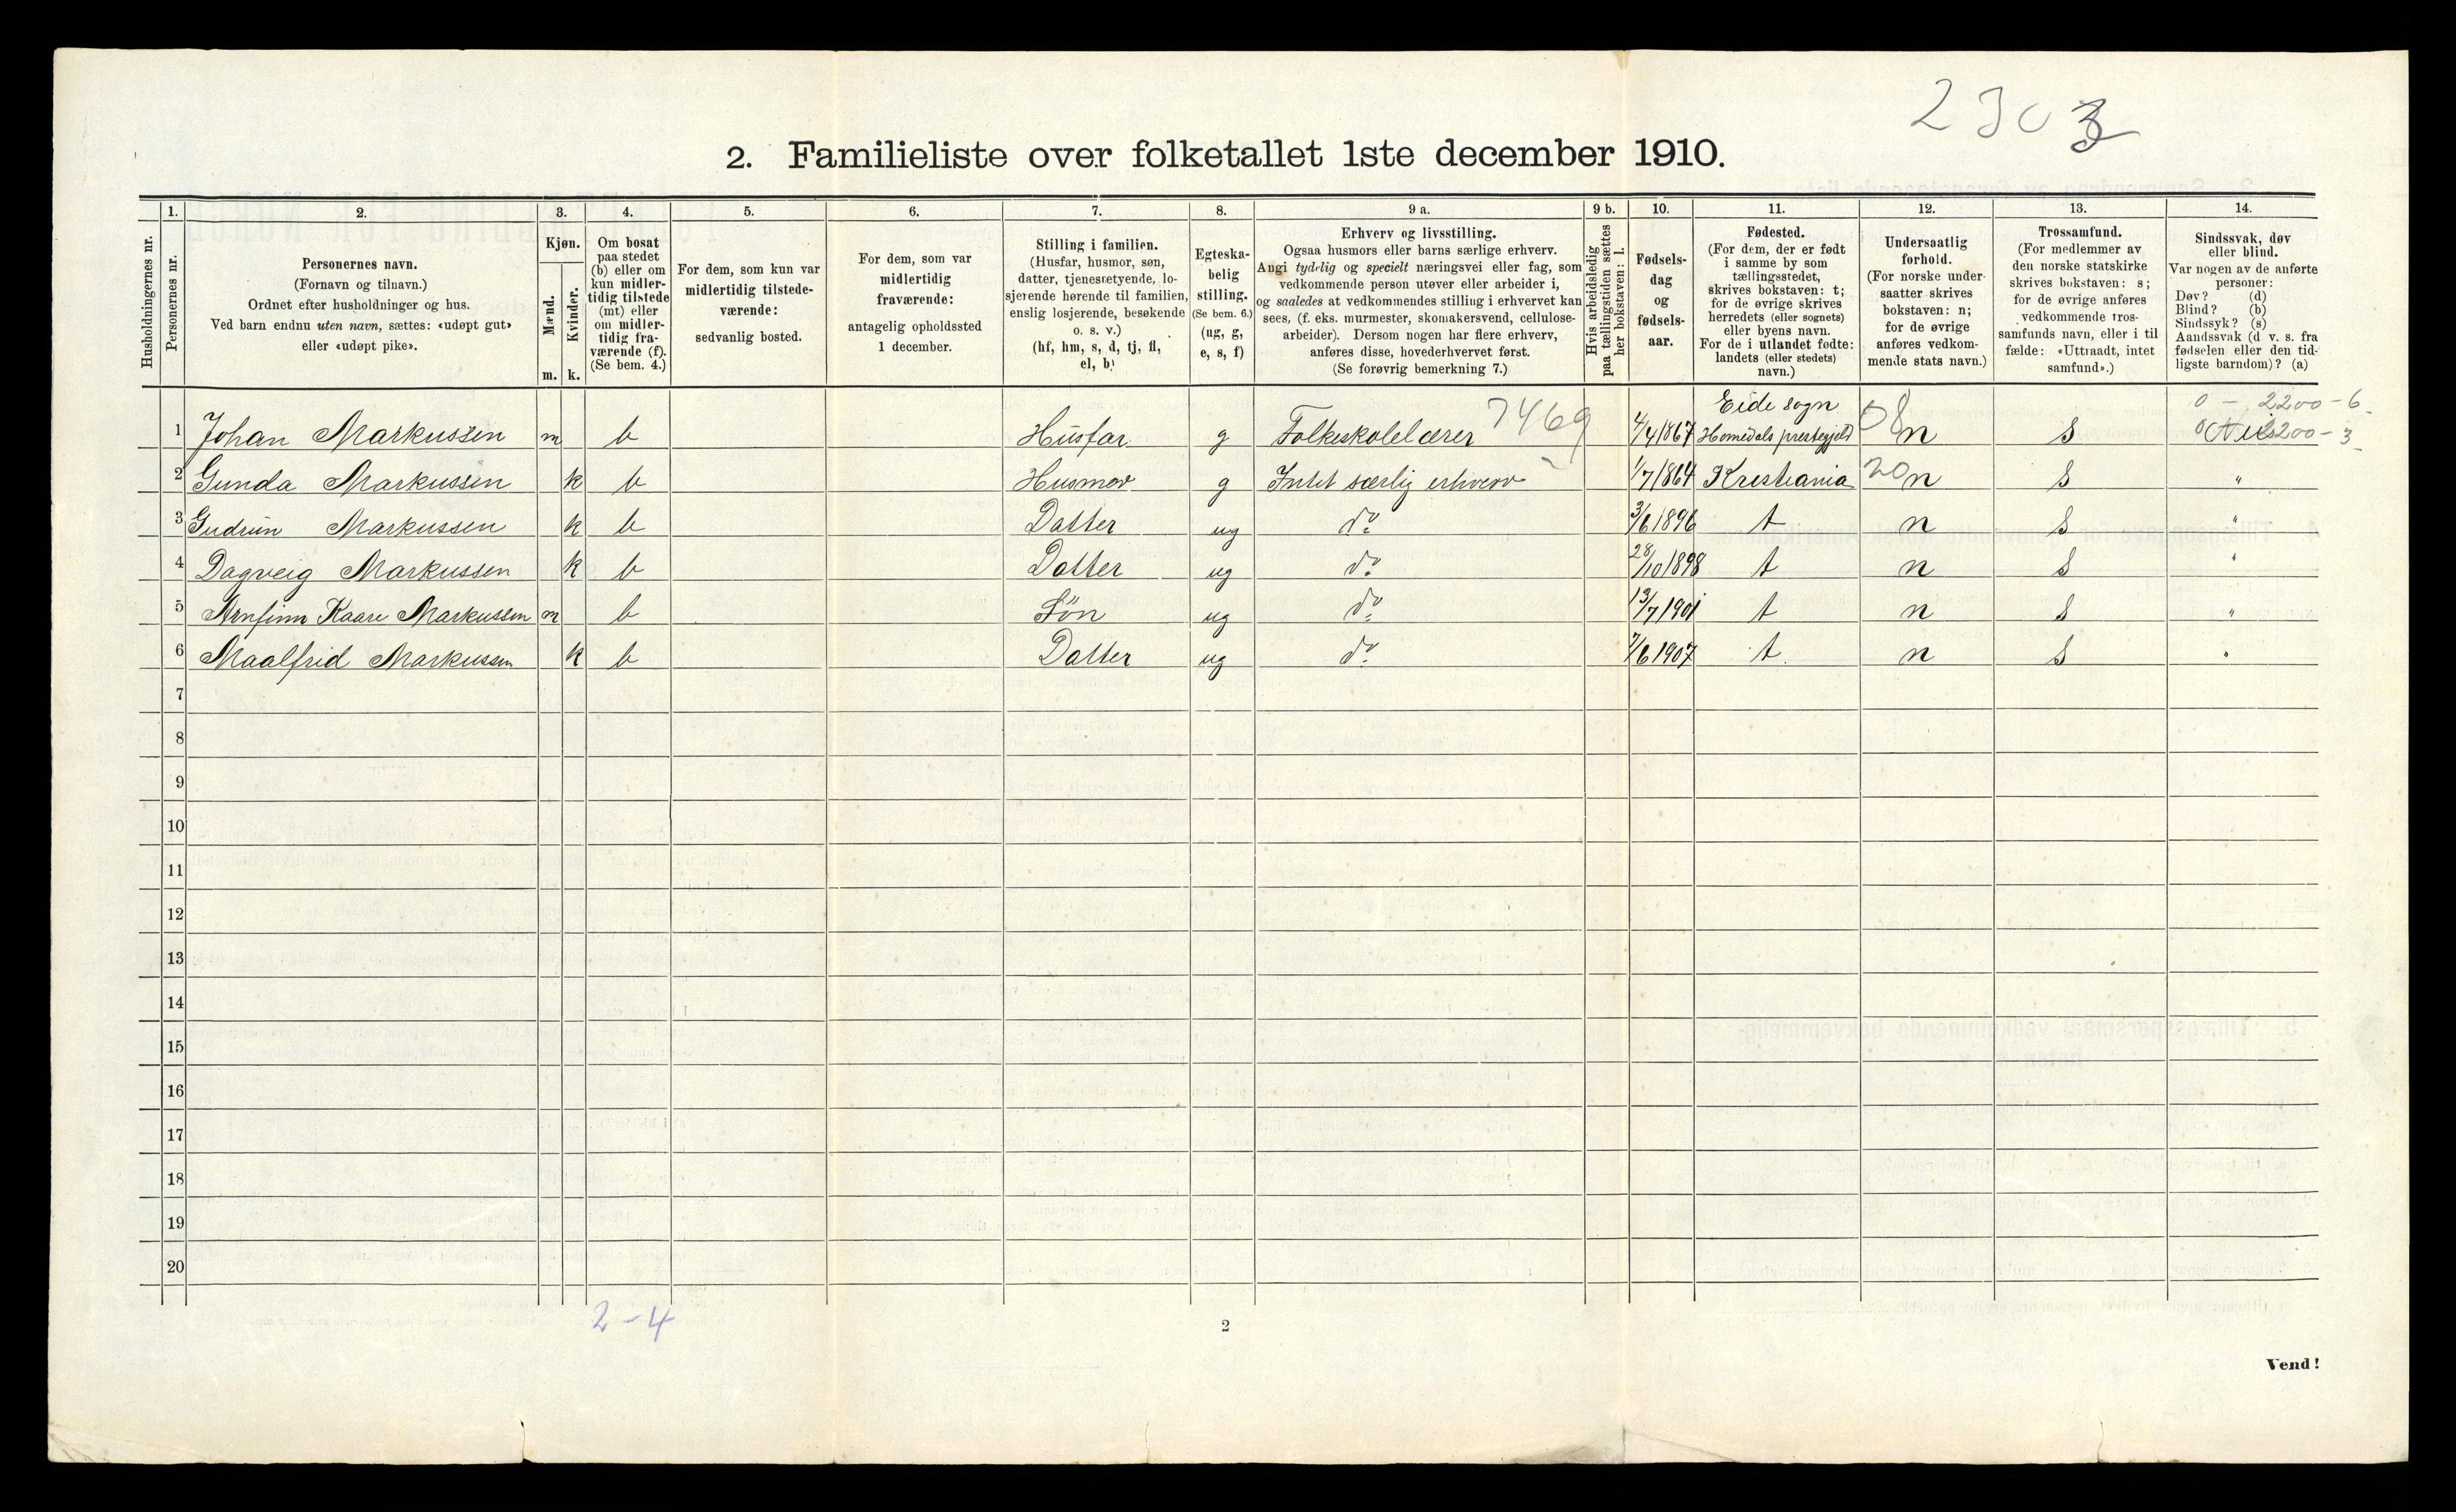 2303
2. Familieliste over folketallet 1ste december 1910.
1. 2. 3. 4. 5. 6. 7. 8. 9 a. 9 b. 10. 11. 12. 13. 14.
Husholdningernes nr.
Personernes nr.
Personernes navn.
(Fornavn og tilnavn.)
Ordnet efter husholdninger og hus.
Ved barn endnu uten navn, sættes: «udøpt gut»
eller «udøpt pike».
Kjøn.
Mænd.
Kvinder.
m. k.
Om bosat
paa stedet
(b) eller om
kun midler-
tidig tilstede
(mt) eller
om midler-
tidig fra-
værende (f).
(Se bem. 4.)
For dem, som kun var
midlertidig tilstede-
værende:
sedvanlig bosted.
For dem, som var
midlertidig
fraværende:
antagelig opholdssted
1 december.
Stilling i familien.
(Husfar, husmor, søn,
datter, tjenestetyende, lo-
sjerende hørende til familien,
enslig losjerende, besøkende
o. s. v.)
(hf, hm, s, d, tj, fl,
el, b)
Egteska-
belig
stilling.
(Se bem. 6.)
(ug, g,
e, s, f)
Erhverv og livsstilling.
Ogsaa husmors eller barns særlige erhverv.
Angi tydelig og specielt næringsvei eller fag, som
vedkommende person utøver eller arbeider i,
og saaledes at vedkommendes stilling i erhvervet kan
sees, (f. eks. murmester, skomakersvend, cellulose-
arbeider). Dersom nogen har flere erhverv,
anføres disse, hovederhvervet først.
(Se forøvrig bemerkning 7.)
Hvis arbeidsledig
paa tællingstiden sættes
her bokstaven: l.
Fødsels-
dag
og
fødsels-
aar.
Fødested.
(For dem, der er født
i samme by som
tællingsstedet,
skrives bokstaven: t;
for de øvrige skrives
herredets (eller sognets)
eller byens navn.
For de i utlandet fødte:
landets (eller stedets)
navn.)
Undersaatlig
forhold.
(For norske under-
saatter skrives
bokstaven: n;
for de øvrige
anføres vedkom-
mende stats navn.)
Trossamfund.
(For medlemmer av
den norske statskirke
skrives bokstaven: s;
for de øvrige anføres
vedkommende tros-
samfunds navn, eller i til
fælde: «Uttraadt, intet
samfund».)
Sindssvak, døv
eller blind.
Var nogen av de anførte
personer:
Døv? (d)
Blind? (b)
Sindssyk? (s)
Aandssvak (d v. s. fra
fødselen eller den tid-
ligste barndom)? (a)
Eide sogn 0 - 2200 - 6
1 Johan Markussen m b Husfar g Folkeskolelærer 7469 4/4 1867 Homedals prestegjeld 08 n s
2 Gunda Markussen k b Husmor g Intet særlig erhverv 1/7 1864 Kristiania 20 n s "
3 Gudrun Markussen k b Datter ug do 3/6 1896 t n s "
4 Dagveig Markussen k b Datter ug do 28/10 1898 t n s "
5 Arnfinn Kaare Markussen m b Søn ug do 13/7 1901 t n s "
6 Maalfrid Markussen k b Datter ug do 7/6 1907 t n s "
7
8
9
10
11
12
13
14
15
16
17
18
19
20
2-4
2
Vend!